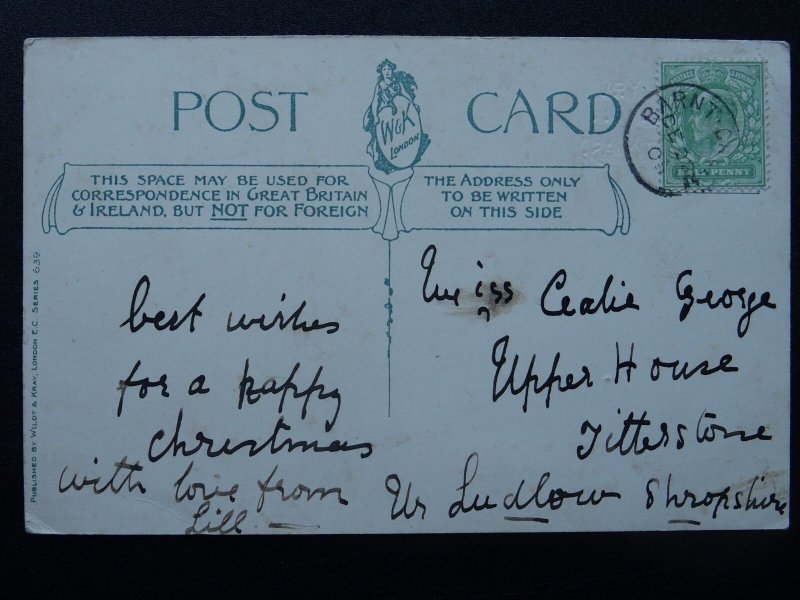 POST CARD
W&K
LONDON
THIS SPACE MAY BE USED FOR
CORRESPONDENCE IN GREAT BRITAIN
& IRELAND, BUT NOT FOR FOREIGN
THE ADDRESS ONLY
TO BE WRITTEN
ON THIS SIDE
PUBLISHED BY WILDT & KRAY, LONDON E.C. SERIES 639
BARNT G
HALFPENNY
best wishes
for a happy
christmas
with love from
Lill
Miss Cealie George
Upper House
Titterstone
Nr Ludlow Shropshire